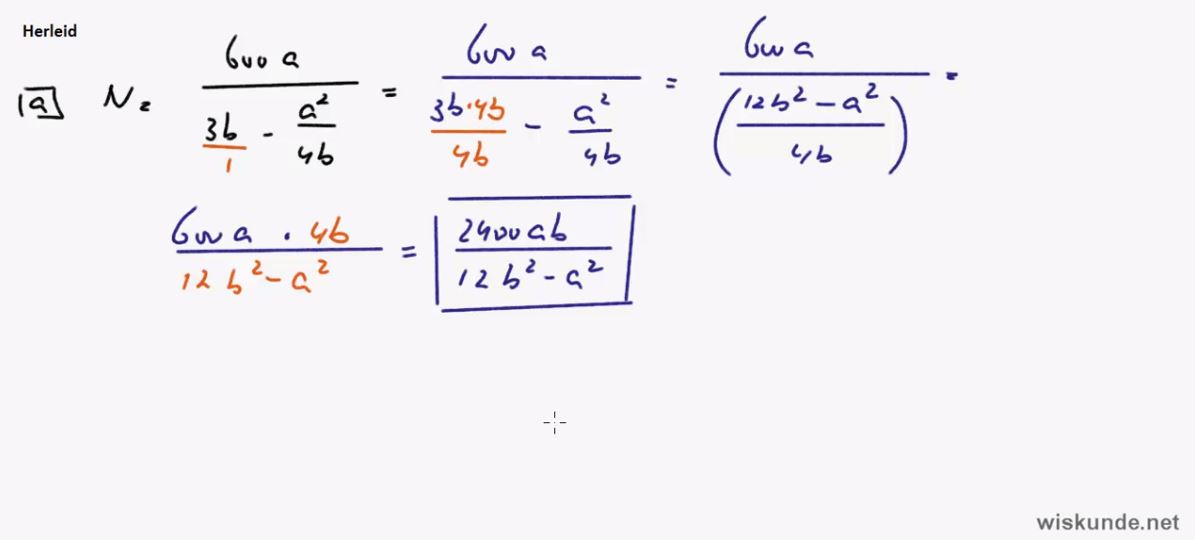 Herleid
a N = 600 a / (3b/1 - a²/4b) = 600 a / (3b·4b/4b - a²/4b) = 600 a / ((12b² - a²)/4b) =
600 a · 4b / (12 b² - a²) = 2400ab / (12 b² - a²)
wiskunde.net